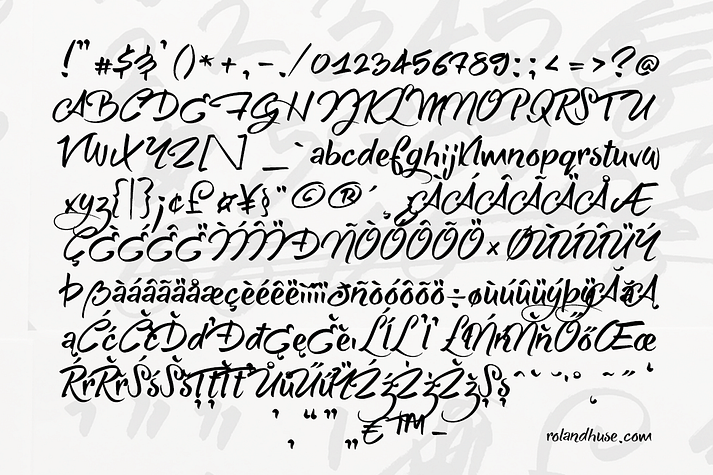 !"#$%'()*+,-./0123456789:;<=>?@
ABCDEFGHIJKLMNOPQRSTU
VWXYZ[\]_`abcdefghijklmnopqrstuvw
xyz{|}¡¢£¤¥§¨©®´¸¿ÀÁÂÃÄÅÆ
ÇÈÉÊËÌÍÎÏÐÑÒÓÔÕÖ×ØÙÚÛÜÝ
Þßàáâãäåæçèéêëìíîïðñòóôõö÷øùúûüýþÿĂăĄ
ąĆćČčĎďĐđĘęĚěıĹĺĽľŁłŃńŇňŐőŒœ
ŔŕŘřŚśŠšŢţŤťŮůŰűŹźŻżŽžȘșˆˇ˘˙˚˛˜˝
‚“”„€™−
rolandhuse.com